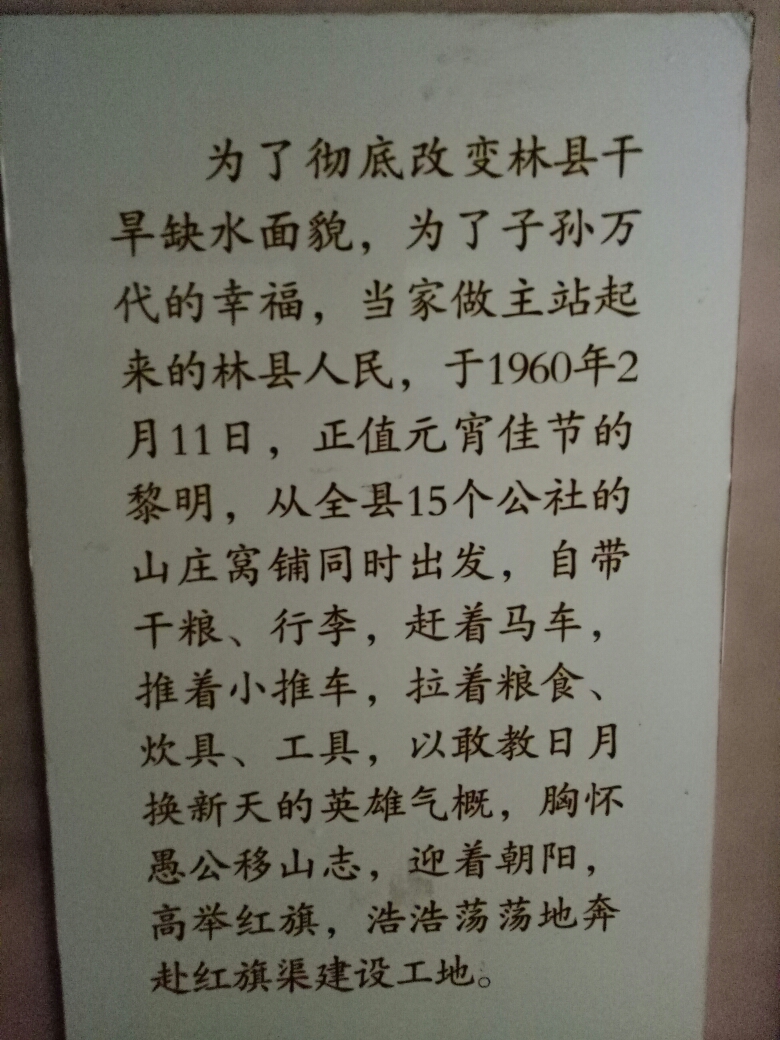 为了彻底改变林县干
旱缺水面貌，为了子孙万
代的幸福，当家做主站起
来的林县人民，于1960年2
月11日，正值元宵佳节的
黎明，从全县15个公社的
山庄窝铺同时出发，自带
干粮、行李，赶着马车，
推着小推车，拉着粮食、
炊具、工具，以敢教日月
换新天的英雄气概，胸怀
愚公移山志，迎着朝阳，
高举红旗，浩浩荡荡地奔
赴红旗渠建设工地。